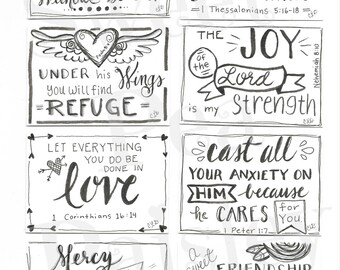 1 Thessalonians 5:16-18
UNDER his Wings
You will find
REFUGE
THE JOY
of the
Lord
is my Strength
Nehemiah 8:10
LET EVERYTHING
YOU DO BE
DONE IN
love
1 Corinthians 16:14
cast all
YOUR ANXIETY ON
HIM because
he CARES for
You.
1 Peter 1:7
Mercy
a
sweet
FRIENDSHIP